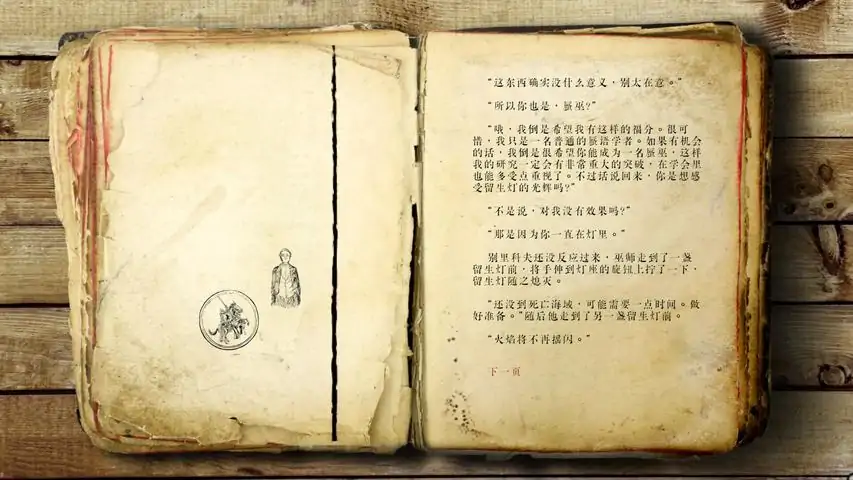 “这东西确实没什么意义，别太在意。”
“所以你也是，蜃巫？”
“哦，我倒是希望我有这样的福分。很可
惜，我只是一名普通的蜃语学者。如果有机会
的话，我倒是很希望你能成为一名蜃巫，这样
我的研究一定会有非常重大的突破，在学会里
也能多受点重视了。不过话说回来，你是想感
受留生灯的光辉吗？”
“不是说，对我没有效果吗？”
“那是因为你一直在灯里。”
别里科夫还没反应过来，巫师走到了一盏
留生灯前，将手伸到灯座的旋钮上拧了一下，
留生灯随之熄灭。
“还没到死亡海域，可能需要一点时间。做
好准备。”随后他走到了另一盏留生灯前。
“火焰将不再摇闪。”
下一页